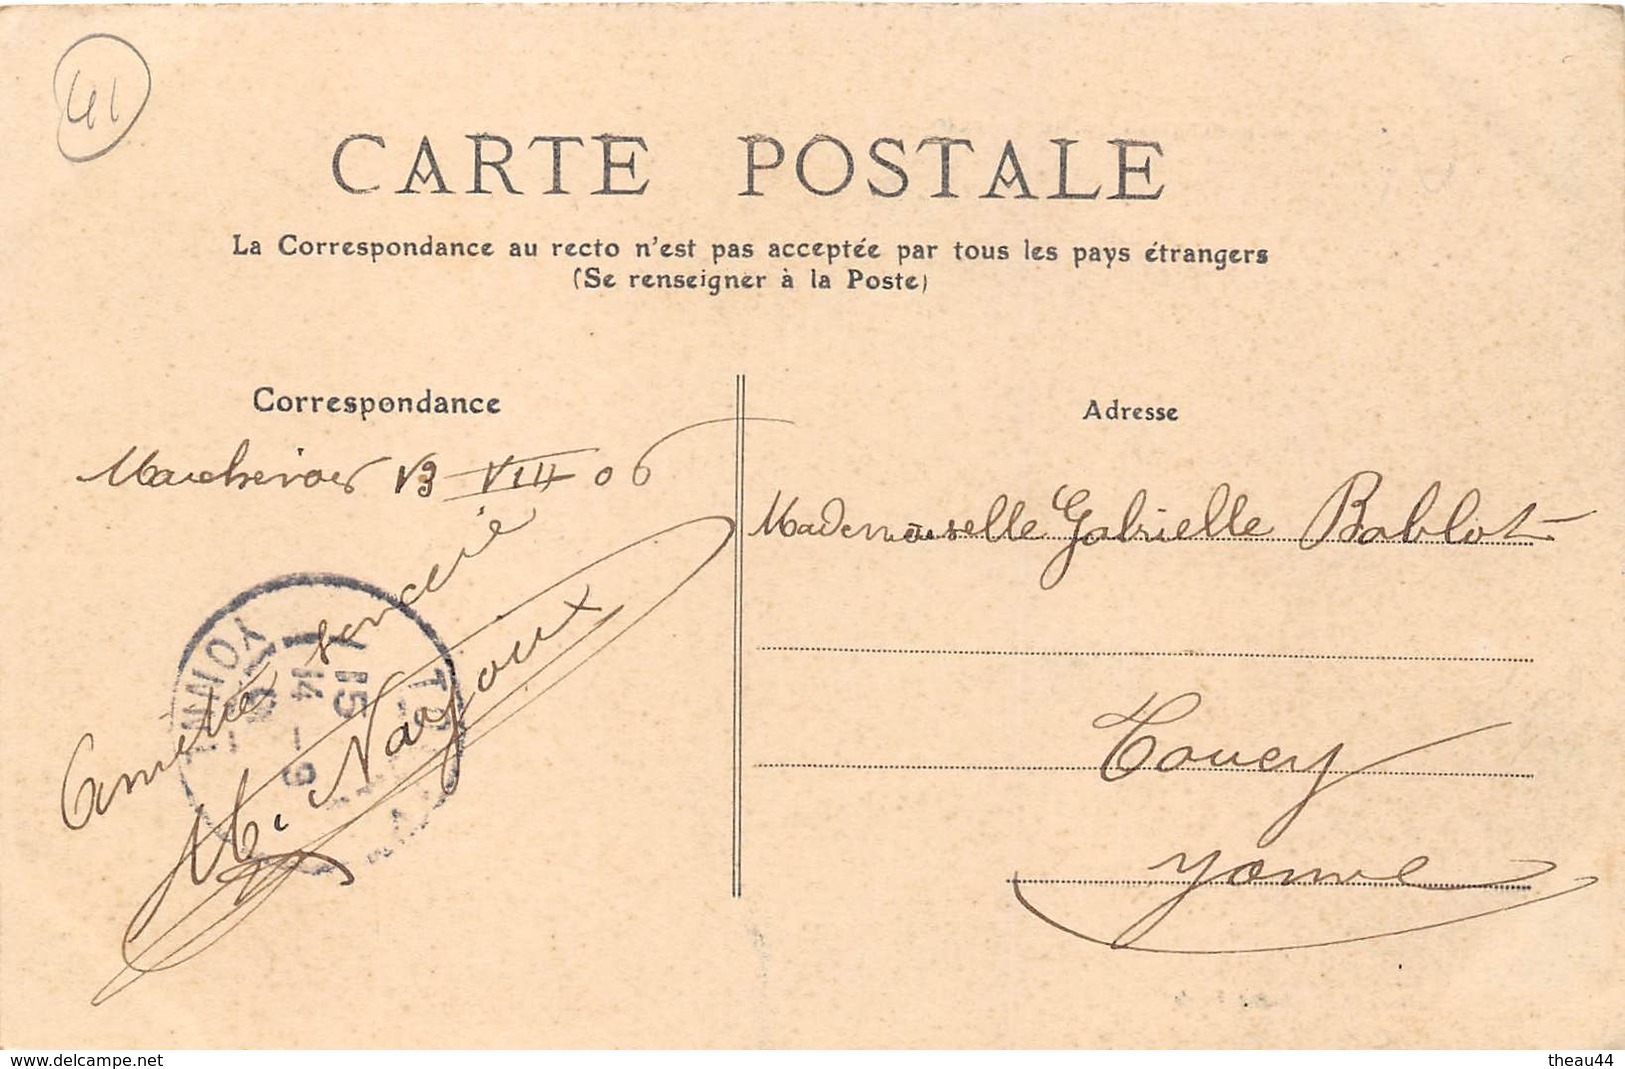 41
CARTE POSTALE
La Correspondance au recto n'est pas acceptée par tous les pays étrangers
(Se renseigner à la Poste)
Correspondance
Marchenoir 13 VIII 06
Amitié sincère
M. Narjoux
YONNE
15
14 - 8
Adresse
Mademoiselle Gabrielle Bablot
Toucy
Yonne
www.delcampe.net
theau44